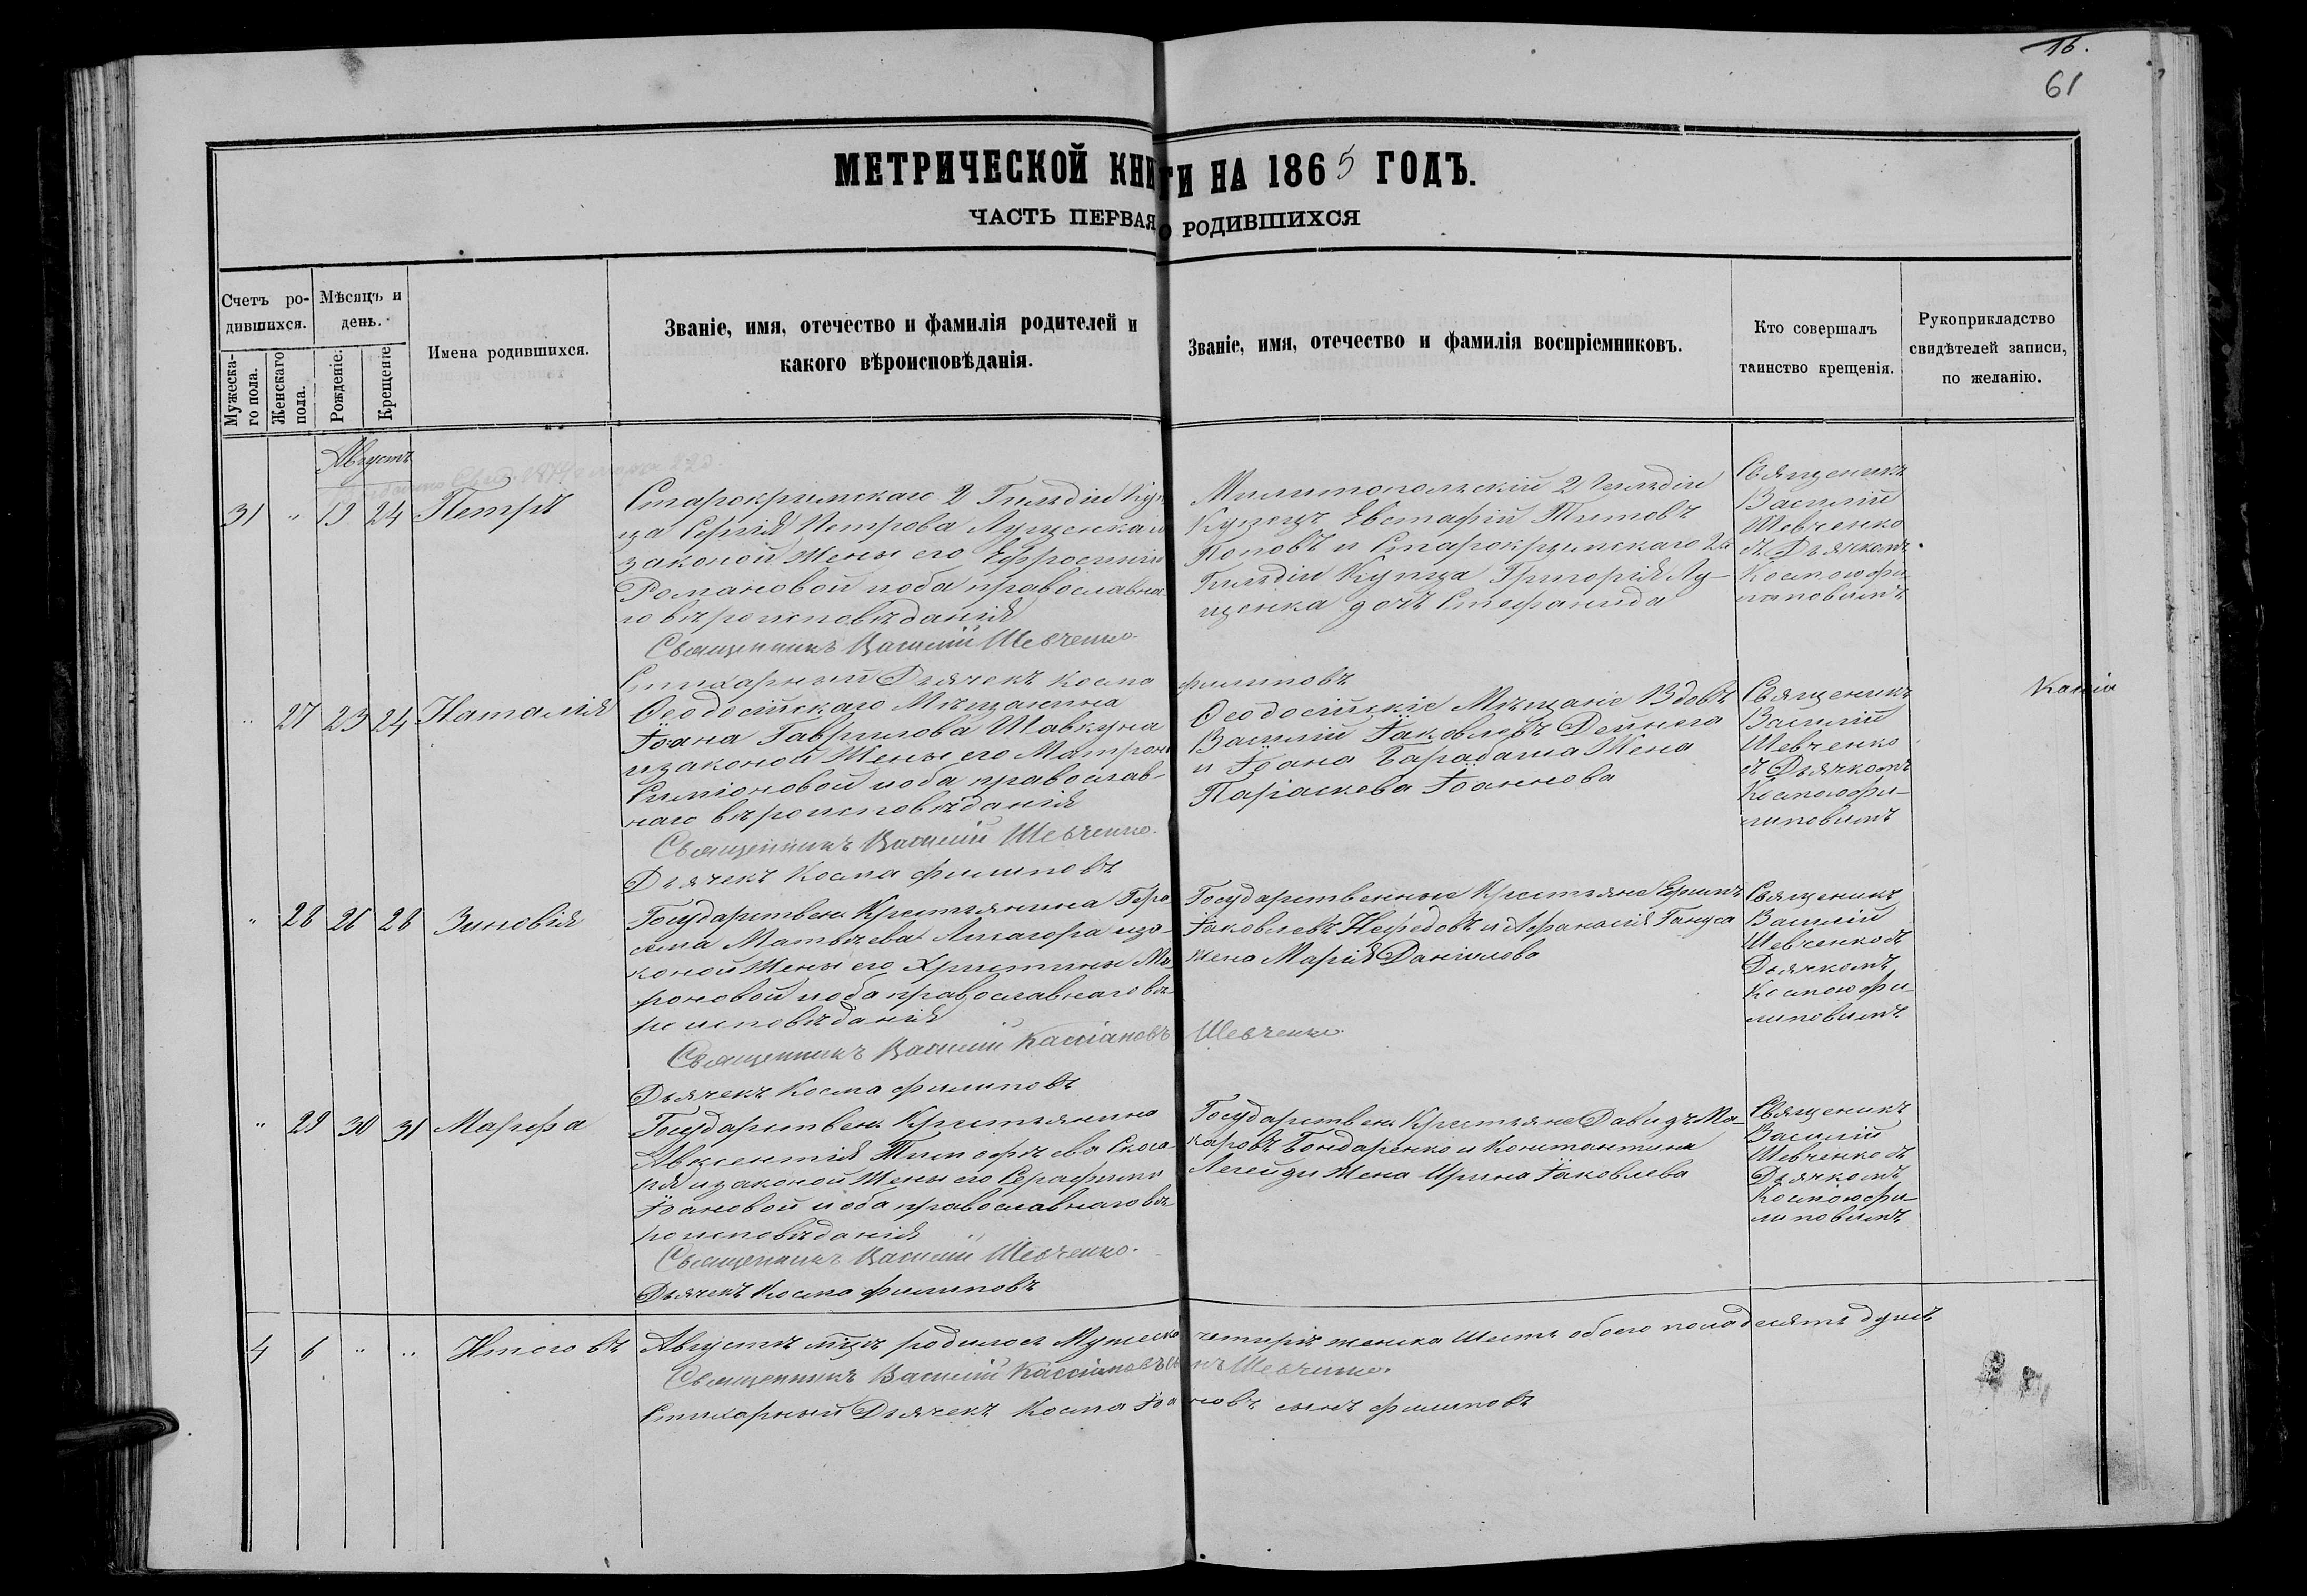 16.
61
МЕТРИЧЕСКОЙ КНИГИ НА 1865 ГОДЪ.
ЧАСТЬ ПЕРВАЯ О РОДИВШИХСЯ
Счетъ ро-
дившихся.
Мужеска-
го пола.
Женскаго
пола.
Мѣсяцъ и
день.
Рожденіе.
Крещеніе
Имена родившихся.
Званіе, имя, отечество и фамилія родителей и
какого вѣроисповѣданія.
Званіе, имя, отечество и фамилія воспріемниковъ.
Кто совершалъ
таинство крещенія.
Рукоприкладство
свидѣтелей записи,
по желанію.
Августъ
31 " 19 24 Петръ
Старокрымскаго 2 Гильдіи Куп
ца Сергія Петрова Луценка и
законой Жены его Ефросиніи
Романовой и оба православна
го вѣроисповѣданія
Священникъ Василій Шевченко.
Стихарный Дьячекъ Косма Филиповъ
Милитопольскій 2 Гильдіи
Купецъ Евстафій Титовъ
Поповъ и Старокрымскаго 2й
Гильдіи Купца Григорія Лу-
ценка дочь Стефанида
Священикъ
Василій
Шевченко
съ Дьячкомъ
Космою Фи
липовымъ
" 27 23 24 Наталія
Ѳеодосійскаго Мѣщанина
Іоана Гаврилова Шавкуна
и законой Жены его Матрон
Симіоновой и оба православ-
наго вѣроисповѣданія
Священникъ Василій Шевченко.
Дьячекъ Косма Филиповъ
Ѳеодосійскіе Мѣщаніе Вдовъ
Василій Іаковлевъ Дейнега
и Іоана Барабаша Жена
Параскева Іоаннова
Священикъ
Василій
Шевченко
съ Дьячкомъ
Космою Фи-
липовымъ
Копія
" 28 26 28 Зиновія
Государствен. Крестьянина Гера
сима Матвѣева и за-
коной Жены его Христины Ма
роновой и оба православнаго вѣ-
роисповѣданія
Священникъ Василій Кассіановъ Шевченко.
Дьячекъ Косма Филиповъ
Государственные Крестьяне Ефимъ
Іаковлевъ Нефедовъ и Афанасія Гануса
жена Марія Даніилова
Священикъ
Василій
Шевченко съ
Дьячкомъ
Космою Фи-
липовымъ
" 29 30 31 Марфа
Государствен. Крестьянина
Авксентія Тимофѣева
и законой Жены его Серафимы
Іоановой и оба православнаго вѣ-
роисповѣданія
Священникъ Василій Шевченко.
Дьячекъ Косма Филиповъ
Государствен. Крестьяне Давидъ Ма-
каровъ Бондаренко и Константина
Легейды Жена Ирина Іаковлева
Священикъ
Василій
Шевченко съ
Дьячкомъ
Космою Фи-
липовымъ
4 6 " " Итого въ Августѣ мцѣ родилось Мужеска четыри женска Шесть обоего пола десять душъ
Священникъ Василій Кассіановъ сынъ Шевченко.
Стихарный Дьячекъ Косма Іоановъ сынъ Филиповъ